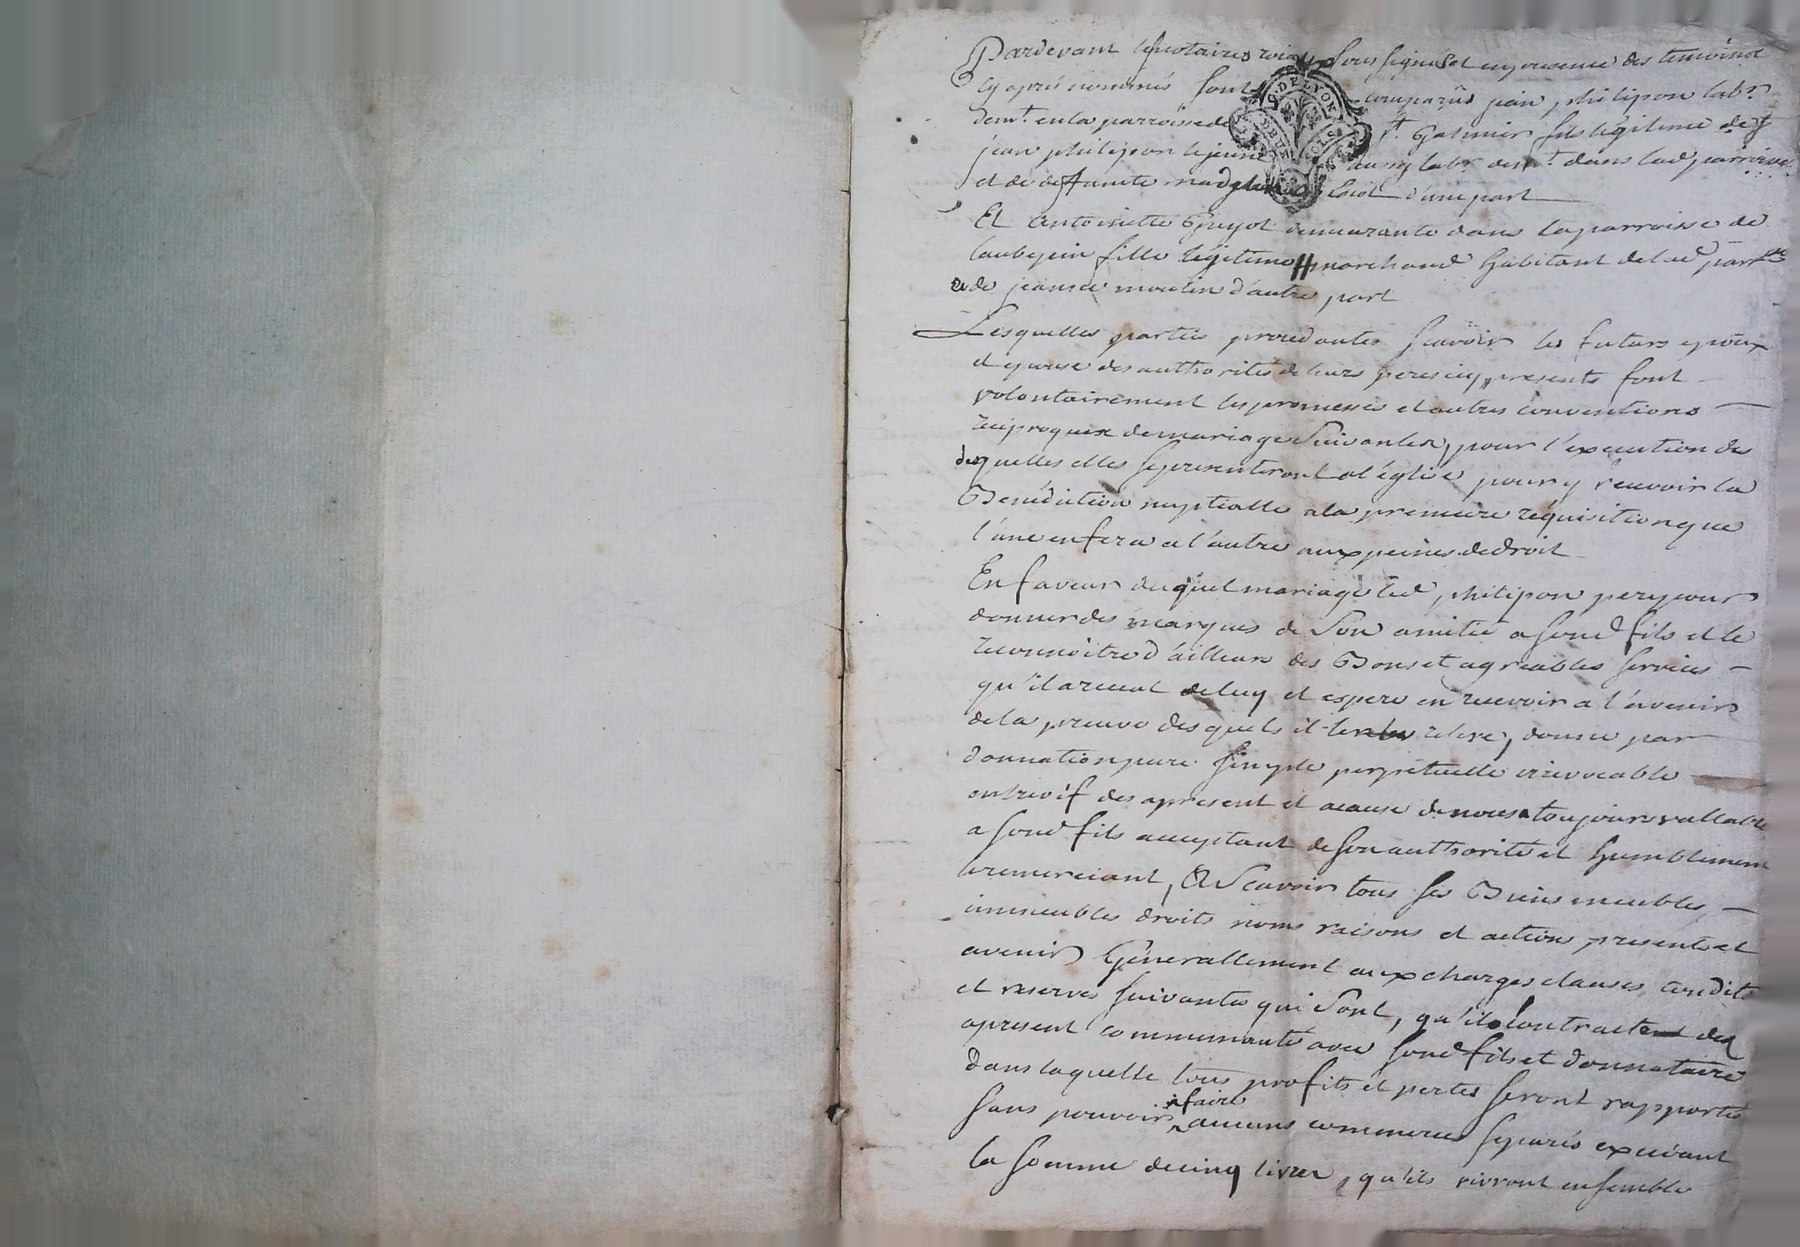 Pardevant le notaires roiaux soussignés et en presence des temoins
cy aprés nommés sont comparûs jean philipon labr.
G. DE LYON
demt. en la parroisse de st. Galmier fils légitime de
jean philipon le jeune aussy labr. demt. dans lad. parroisse
et de deffunte d'une part
Et Antoinette Guyot demeurante dans la parroisse de
fille légitime marchand habitant de lad. parrsse
& de jeanne moulin d'autre part
Lesquelles parties procedantes scavoir les futurs epoux
et epouse des authorités de leurs peres icy presents font
volontairement les promesses et autres conventions
réciproques de mariage suivantes, pour l'execution des
quelles elles se presenteront a l'église pour y recevoir la
Benédiction nuptialle a la premiere réquisition que
l'une en fera a l'autre aux peines de droit
En faveur duquel mariage led. philipon pere pour
donner des marques de son amitié a soned. fils et le
reconnoitre d'ailleurs des Bons et agreables services
qu'il a recut de luy et espere en recevoir a l'avenir
de la preuve desquels il le releve, donne par
donnation pure simple perpetuelle irrevocable
entre vif des apresent et a cause de noces toujours vallable
a soned. fils acceptant de son authorité et humblement
le remerciant, Scavoir tous ses Biens meubles
immeubles droits noms raisons et actions presents et
avenir Généralement aux charges clauses, condits
et reserves suivantes qui sont, qu'ils contractent des
apresent communauté avec soned. fils et donnataire
dans laquelle tous profits et pertes seront rapportés
sans pouvoir faire aucuns commerces separés exceédant
la somme de cinq livres, qu'ils vivront ensemble